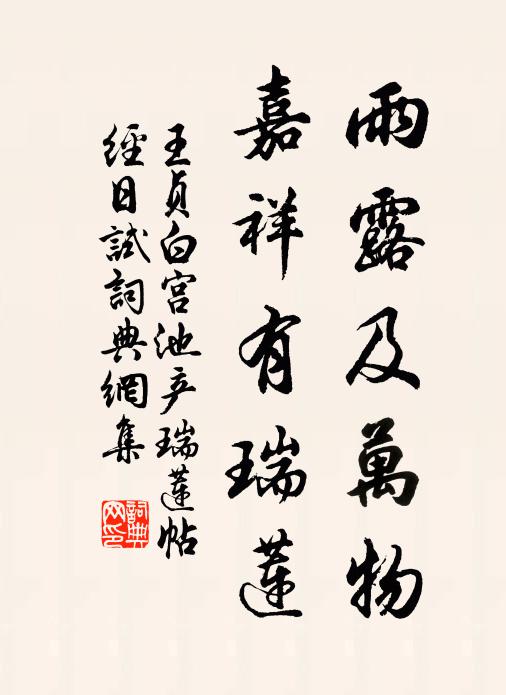 雨露及萬物
嘉祥有瑞蓮
王貞白宫池产瑞蓮帖
經日試詞典網集
詞典网印